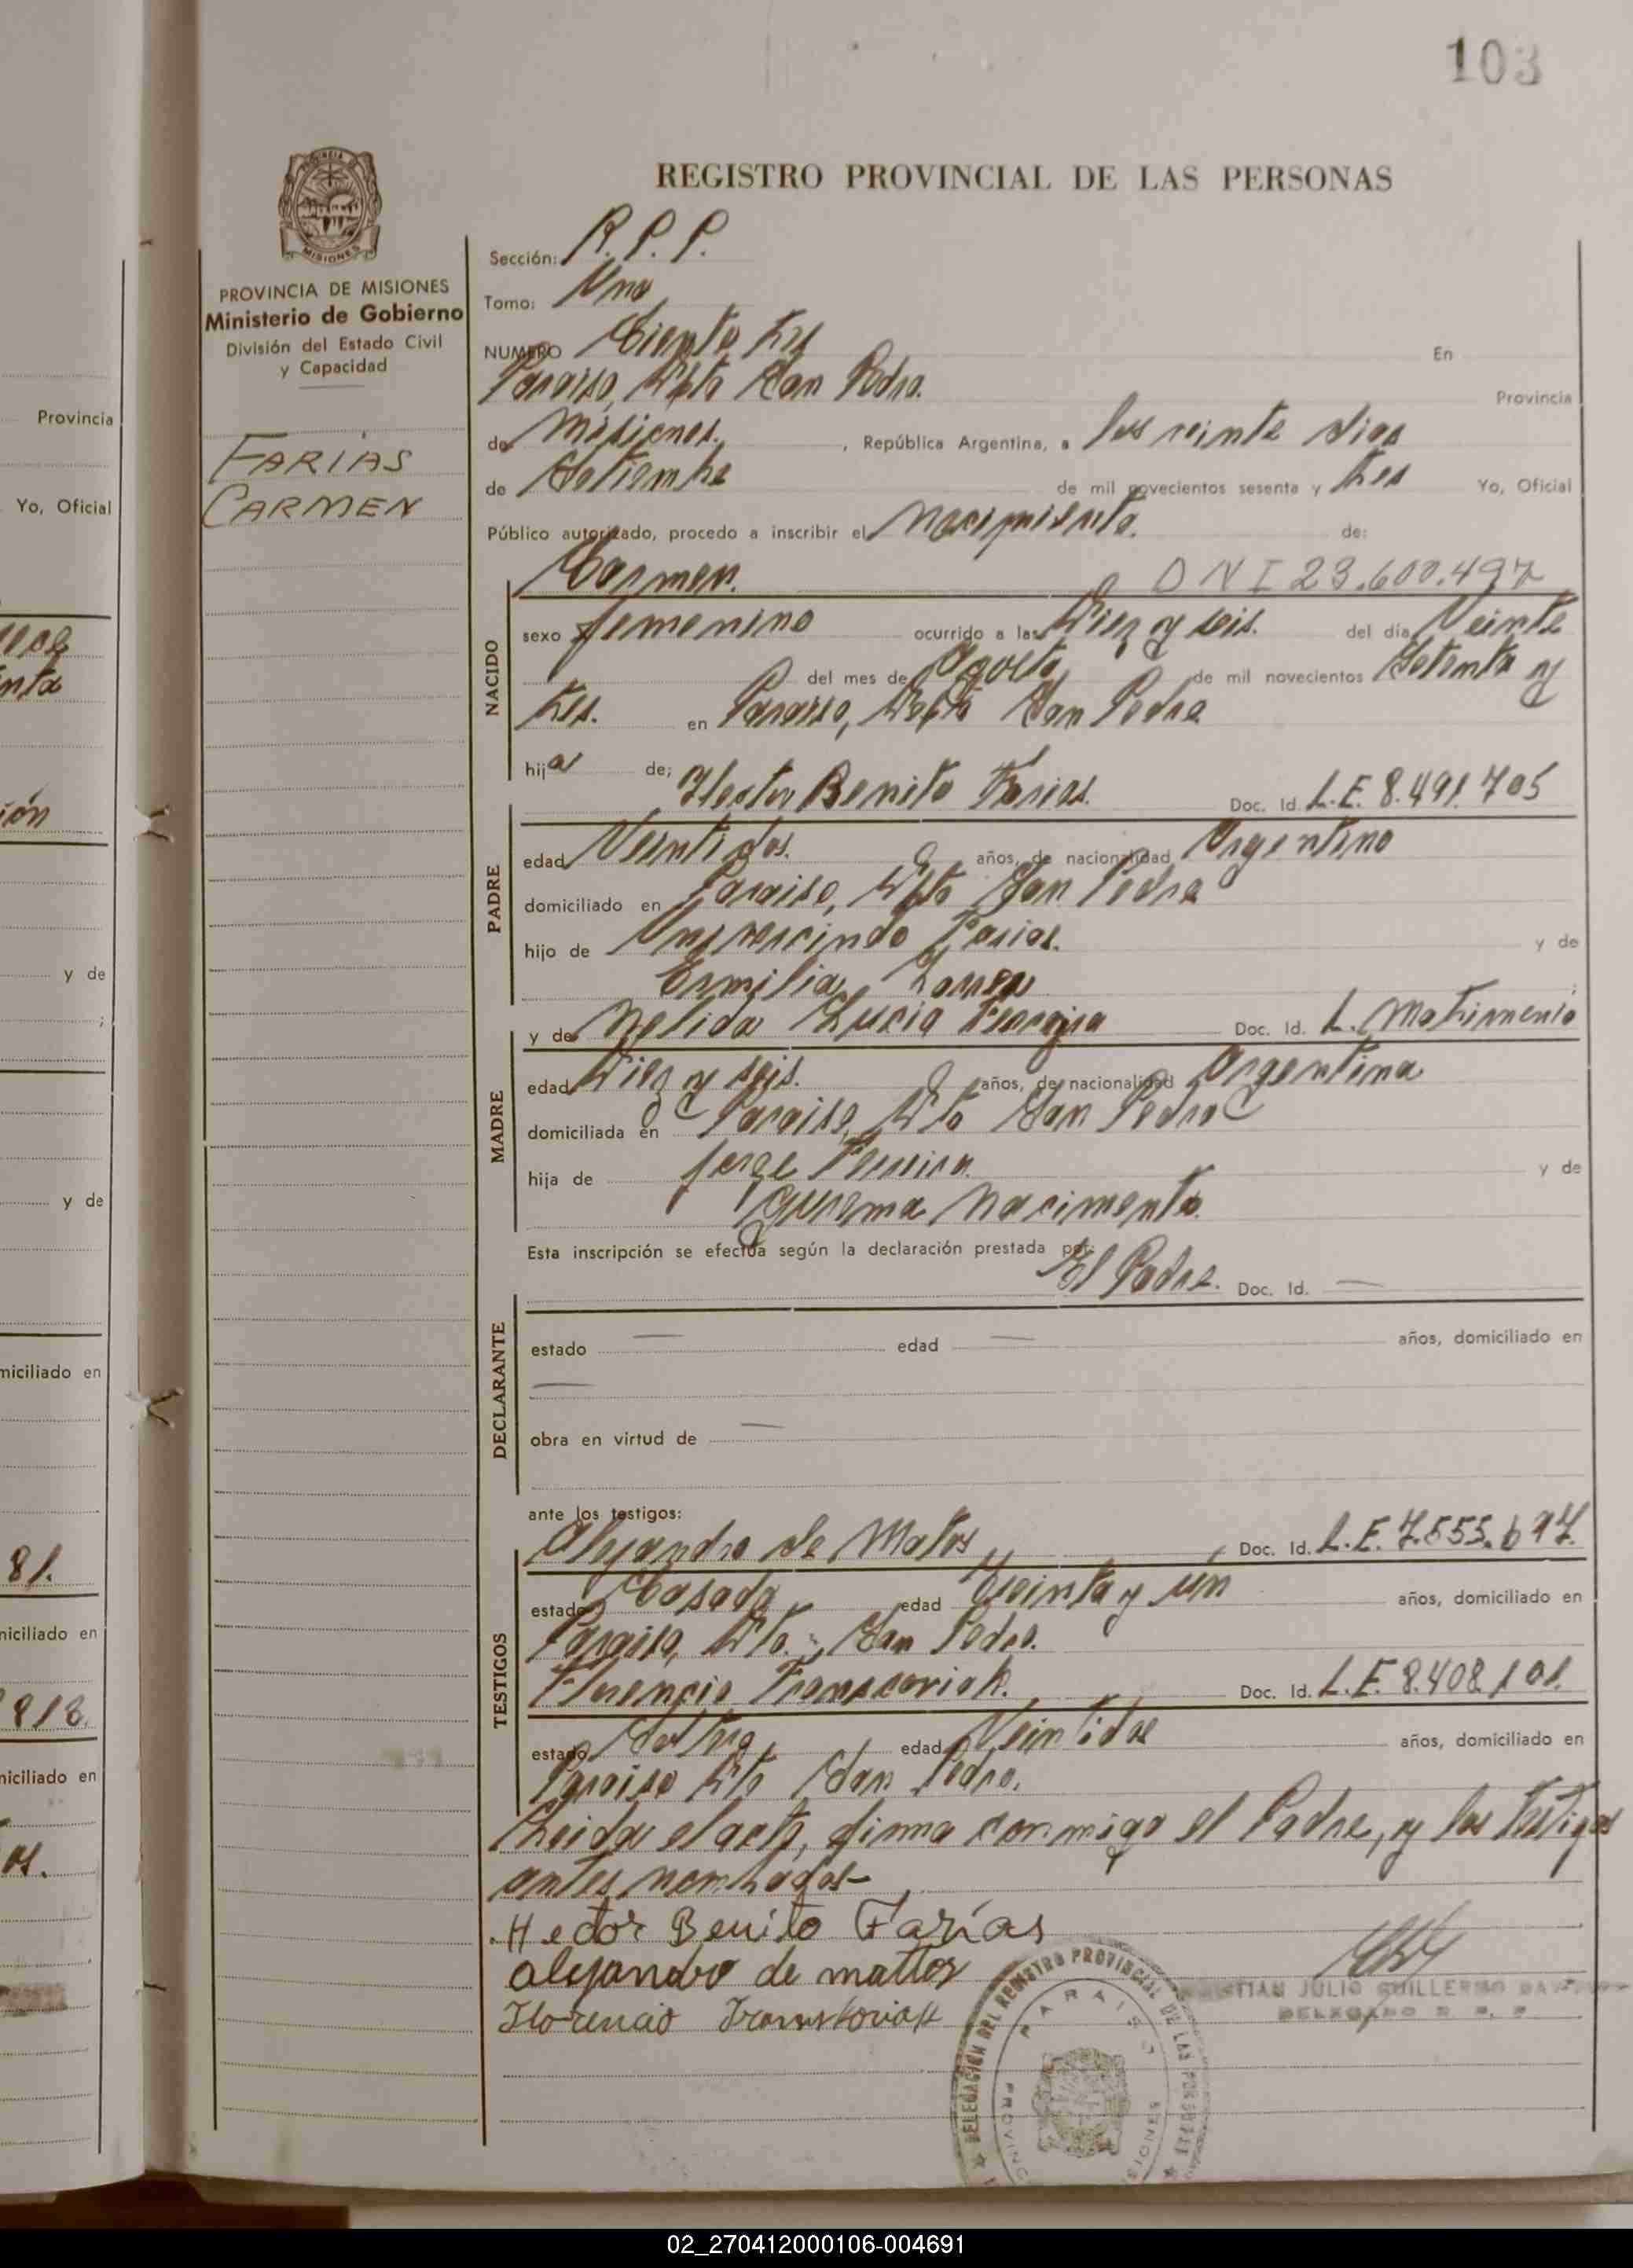 103
REGISTRO PROVINCIAL DE LAS PERSONAS
MISIONES
PROVINCIA DE MISIONES
Ministerio de Gobierno
División del Estado Civil
y Capacidad
FARIAS
CARMEN
Sección: R. P. P.
Tomo: Uno
NUMERO Ciento tres En
Paraiso, Dpto San Pedro. Provincia
de Misiones. , República Argentina, a los veinte dias
de Setiembre de mil novecientos sesenta y tres Yo, Oficial
Público autorizado, procedo a inscribir el Nacimiento. de:
Carmen. DNI 23.600.497
NACIDO
sexo femenino ocurrido a las Diez y seis. del día Veinte
del mes de Agosto de mil novecientos Setenta y
tres. en Paraiso, Dpto San Pedro
hija de; Hector Benito Farias. Doc. Id. L.E. 8.491.705
PADRE
edad Veintidos. años, de nacionalidad Argentino
domiciliado en Paraiso, Dpto San Pedro
hijo de Farias. y de
Ermilia
y de Nelida Lucia Ferreira Doc. Id. L. Matrimonio
MADRE
edad Diez y seis. años, de nacionalidad Argentina
domiciliada en Paraiso, Dto San Pedro
hija de Jorge Ferreira. y de
Nacimento.
Esta inscripción se efectúa según la declaración prestada por:
El Padre. Doc. Id. —
DECLARANTE
estado — edad — años, domiciliado en
—
obra en virtud de —
ante los testigos:
Alejandro de Matos Doc. Id. L.E. 7.555.677.
TESTIGOS
estado Casado edad Treinta y un años, domiciliado en
Paraiso, Dto. San Pedro.
Florencio Doc. Id. L.E. 8.408.101.
estado Soltero edad Veintidos años, domiciliado en
Paraiso Dto San Pedro.
Leida el acta, firma conmigo el Padre, y los testigos
antes nombrados—
Hector Benito Farías
alejandro de mattos
Florencio
JULIO GUILLERMO
DELEGADO R. P. P.
DELEGACIÓN DEL REGISTRO PROVINCIAL DE LAS PERSONAS
PARAISO
Provincia
Yo, Oficial
y de
y de
81.
miciliado en
niciliado en
niciliado en
02_270412000106-004691